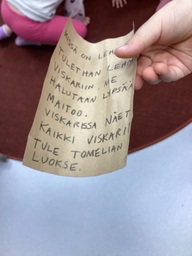 ON
TULETHAN
VISKARIIN. ME
HALUTAAN LYPSÄÄ
MAITOO.
VISKARISSA NÄET
KAIKKI VISKARI
TULE TOMELIAN
LUOKSE.